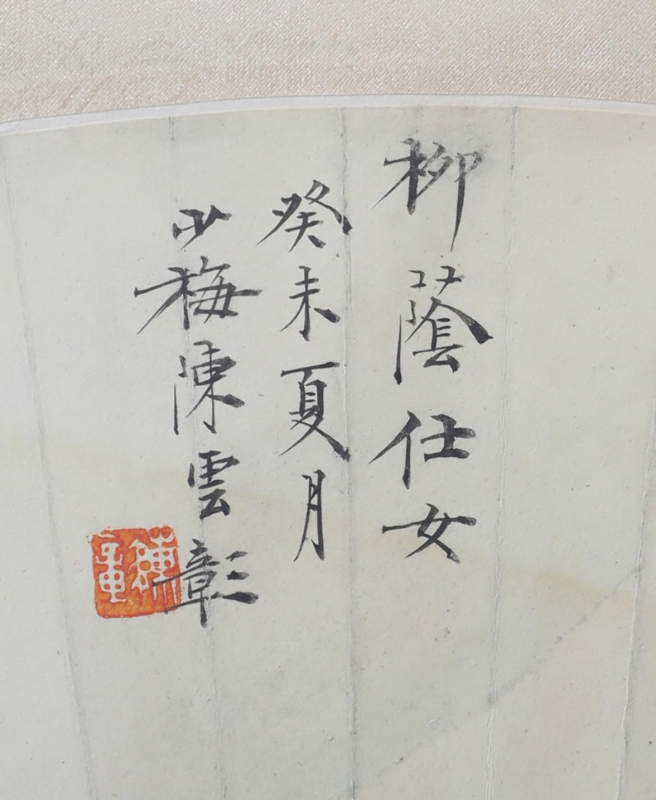 柳蔭仕女
癸未夏月
少梅陳雲彰